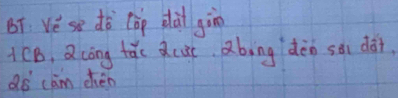 BT: Vẽ sơ đồ lắp đặt gồm
1CB, 2 công tắc 2 cực, 2 bóng đèn sợi đốt,
2 ổ cắm điện